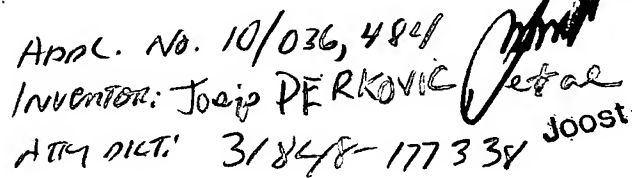 APPL. No. 10/036,484
INVENTOR: Josip PERKOVIC et al
ATTY DKT: 31848-177338
JOOST